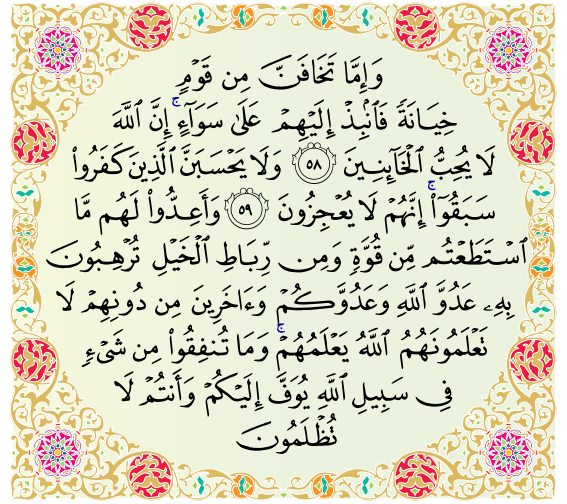 وَإِمَّا تَخَافَنَّ مِن قَوْمٍ
خِيَانَةً فَٱنۢبِذْ إِلَيْهِمْ عَلَىٰ سَوَآءٍ ۚ إِنَّ ٱللَّهَ
لَا يُحِبُّ ٱلْخَآئِنِينَ ٥٨ وَلَا يَحْسَبَنَّ ٱلَّذِينَ كَفَرُوا۟
سَبَقُوٓا۟ ۚ إِنَّهُمْ لَا يُعْجِزُونَ ٥٩ وَأَعِدُّوا۟ لَهُم مَّا
ٱسْتَطَعْتُم مِّن قُوَّةٍ وَمِن رِّبَاطِ ٱلْخَيْلِ تُرْهِبُونَ
بِهِۦ عَدُوَّ ٱللَّهِ وَعَدُوَّكُمْ وَءَاخَرِينَ مِن دُونِهِمْ لَا
تَعْلَمُونَهُمُ ٱللَّهُ يَعْلَمُهُمْ ۚ وَمَا تُنفِقُوا۟ مِن شَىْءٍ
فِى سَبِيلِ ٱللَّهِ يُوَفَّ إِلَيْكُمْ وَأَنتُمْ لَا
تُظْلَمُونَ